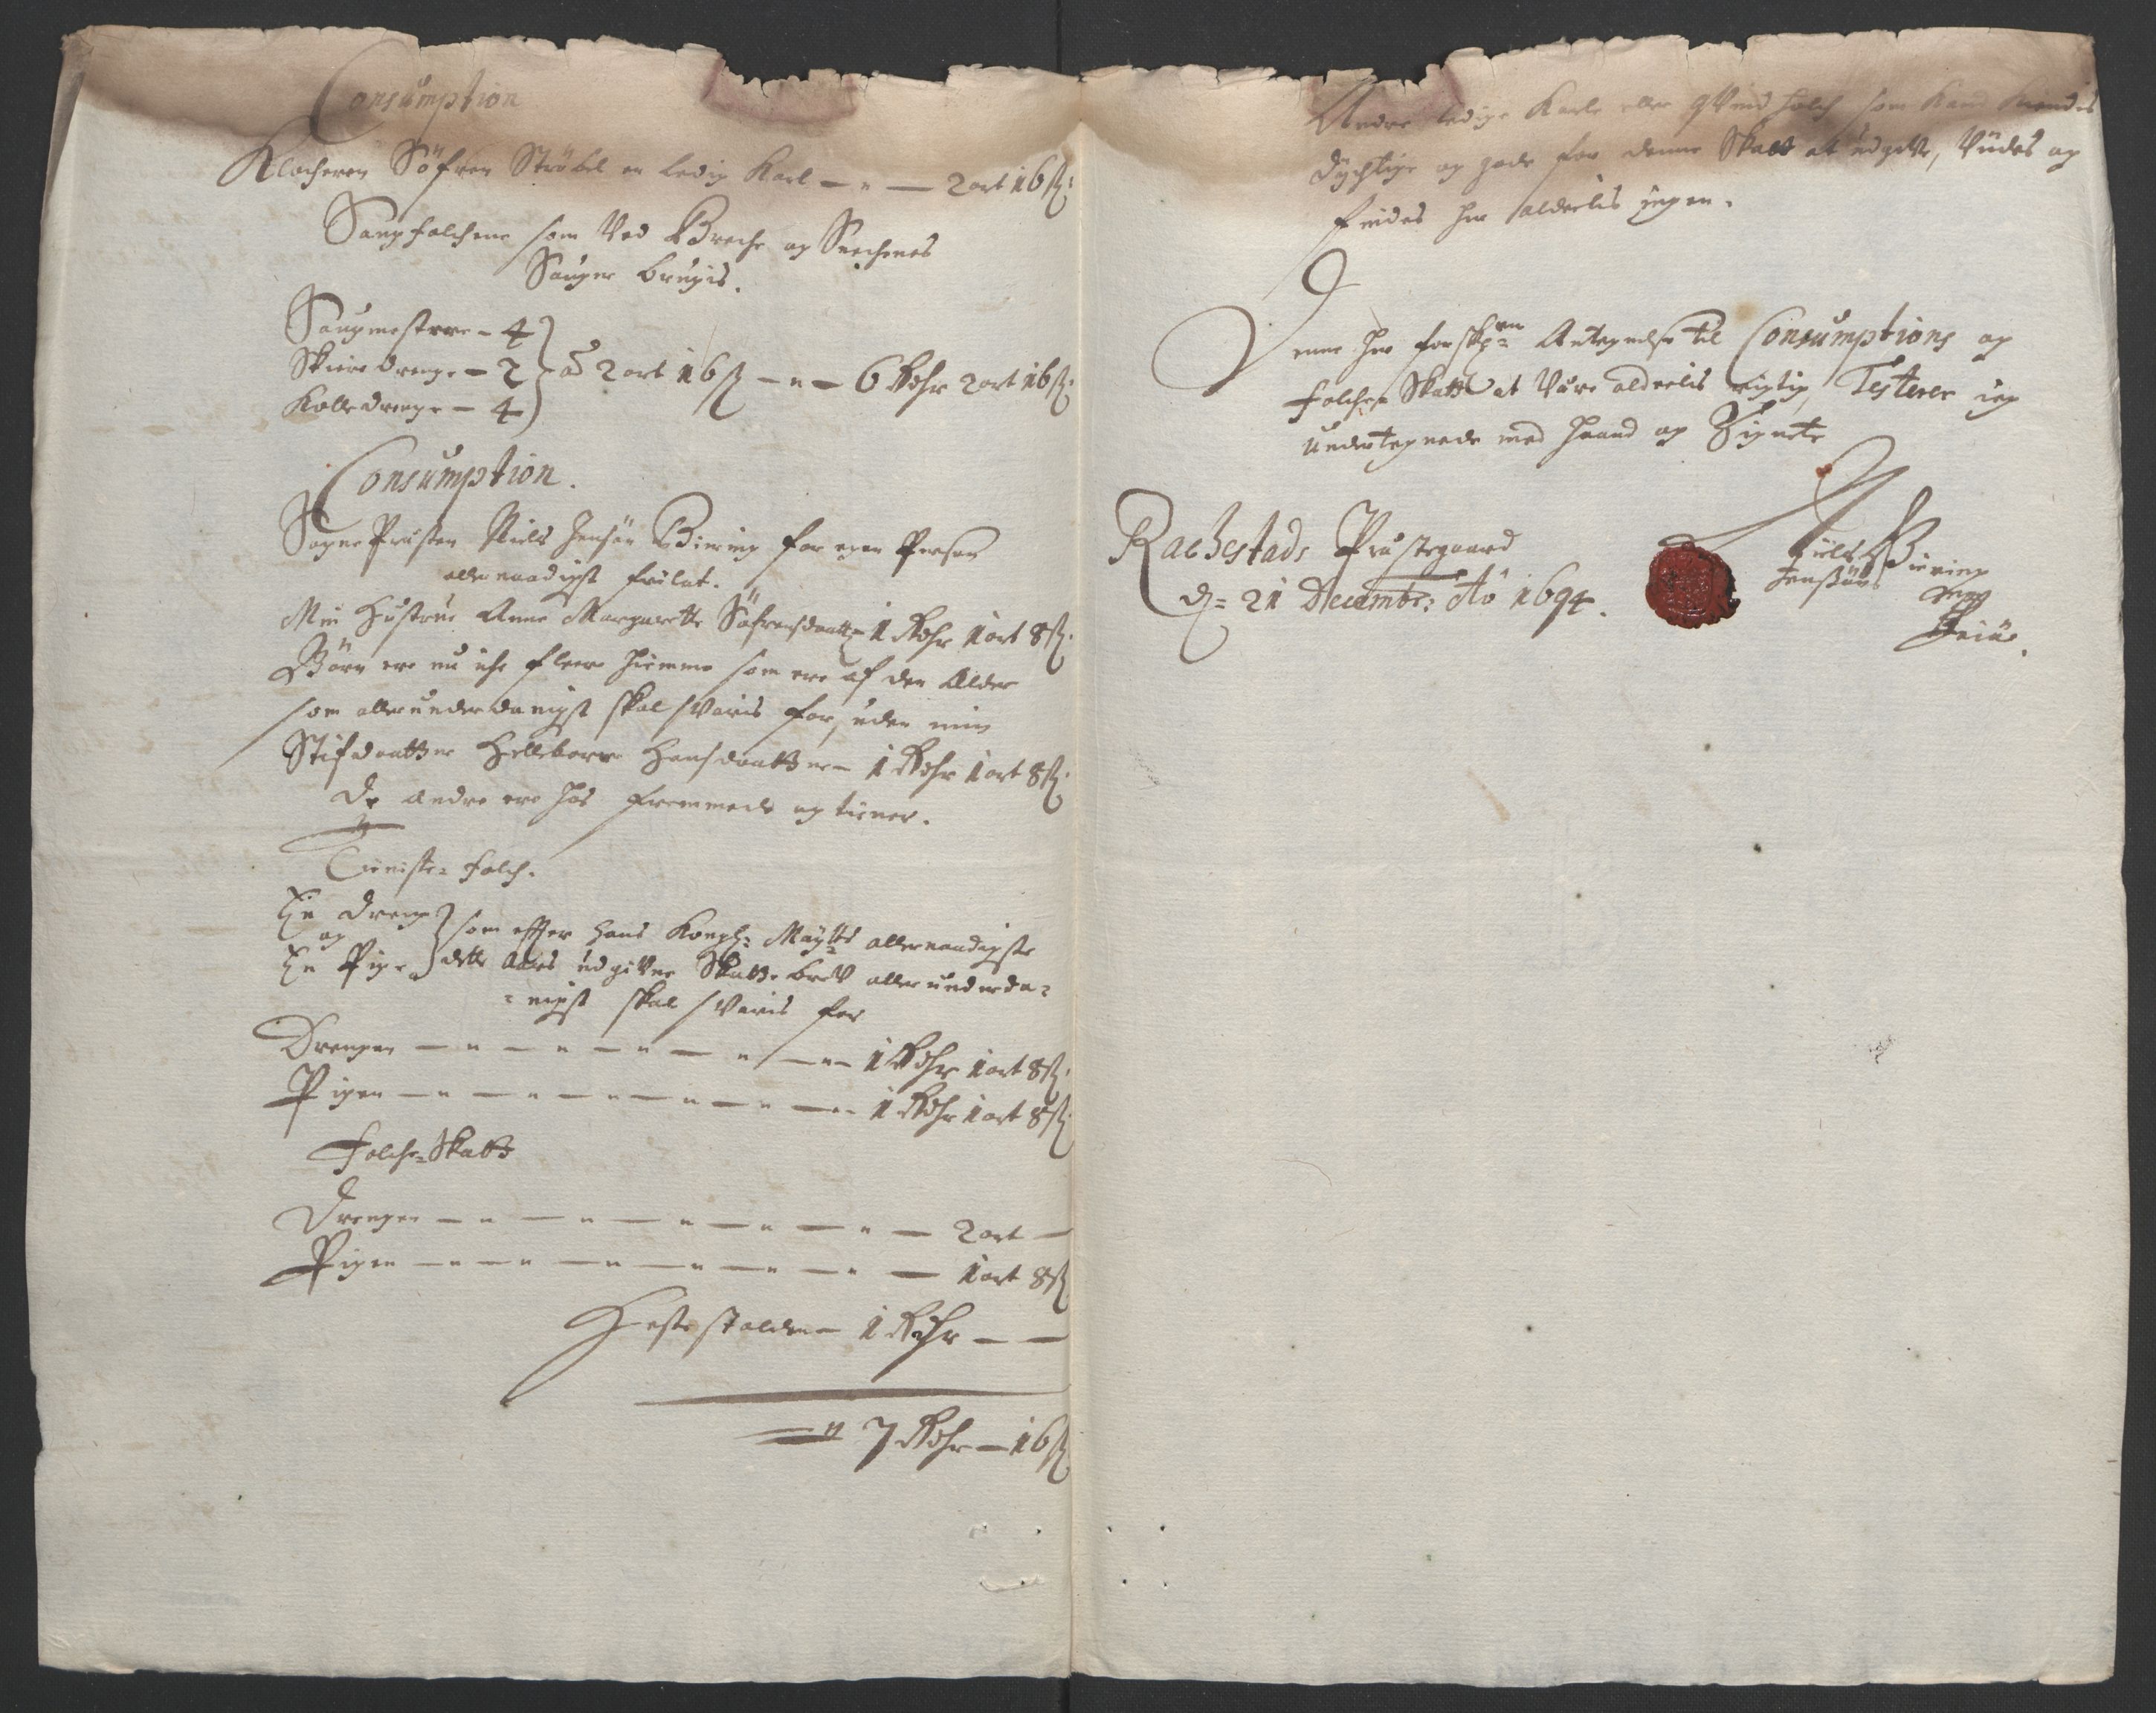 Consumption
Klocheren Söfren Ströbel en ledig Karl — " — 2 ort 16 ß:
Saugfolchene som Ved Breche og Srechenes
Sauger brugis.
Saugmestere – 4
Skiere drenge – 2 } â 2 ort 16 ß — " — 6 Rdhr 2 ort 16 ß:
Kolle drenge – 4
Consumption.
SognePresten Niels Jensön Biering for egen Person
allernaadigst frilat.
Min Hustrue Anne Margarette Söfrensdaatter 1 Rdhr 1 ort 8 ß:
Börn ere nu iche fleere hiemme som ere af den Alder
som allerunderdanigst skal svaris for, uden min
Stifdaatter Helleborre Hansdaatter – 1 Rdhr 1 ort 8 ß:
De andre ere hos fremmede og tiener.
Tieniste-folch.
En dreng
og } som effter Hans Kongl: Maÿtts allernaadigste
En Pige } dette Aars udgivne Skatte brev allerunderda=
=nigst skal svaris for
Drengen — " — " — " — " — " — 1 Rdhr 1 ort 8 ß:
Pigen — " — " — " — " — 1 Rdhr 1 ort 8 ß
Folche-Skatt
Drengen — " — " — " — " — 2 ort —
Pigen — " — " — " — " — 1 ort 8 ß
Heste stalden 1 Rdhr — —
" 7 Rdhr — 16 ß
Andre ledige Karle eller qvind folch som kand kiendes
dychtige og gode for denne Skatt at udgifve, Vides og
findes her alderlis ingen.
Denne her forskrefvne Antegnelse til Consumptions og
folche Skatt at Være alderlis rigtig, Testerer ieg
undertegnede med Haand og Signete
Rachestads Præstegaard
d= 21 Decembr: Aô 1694.
Niels Biering
Jensön